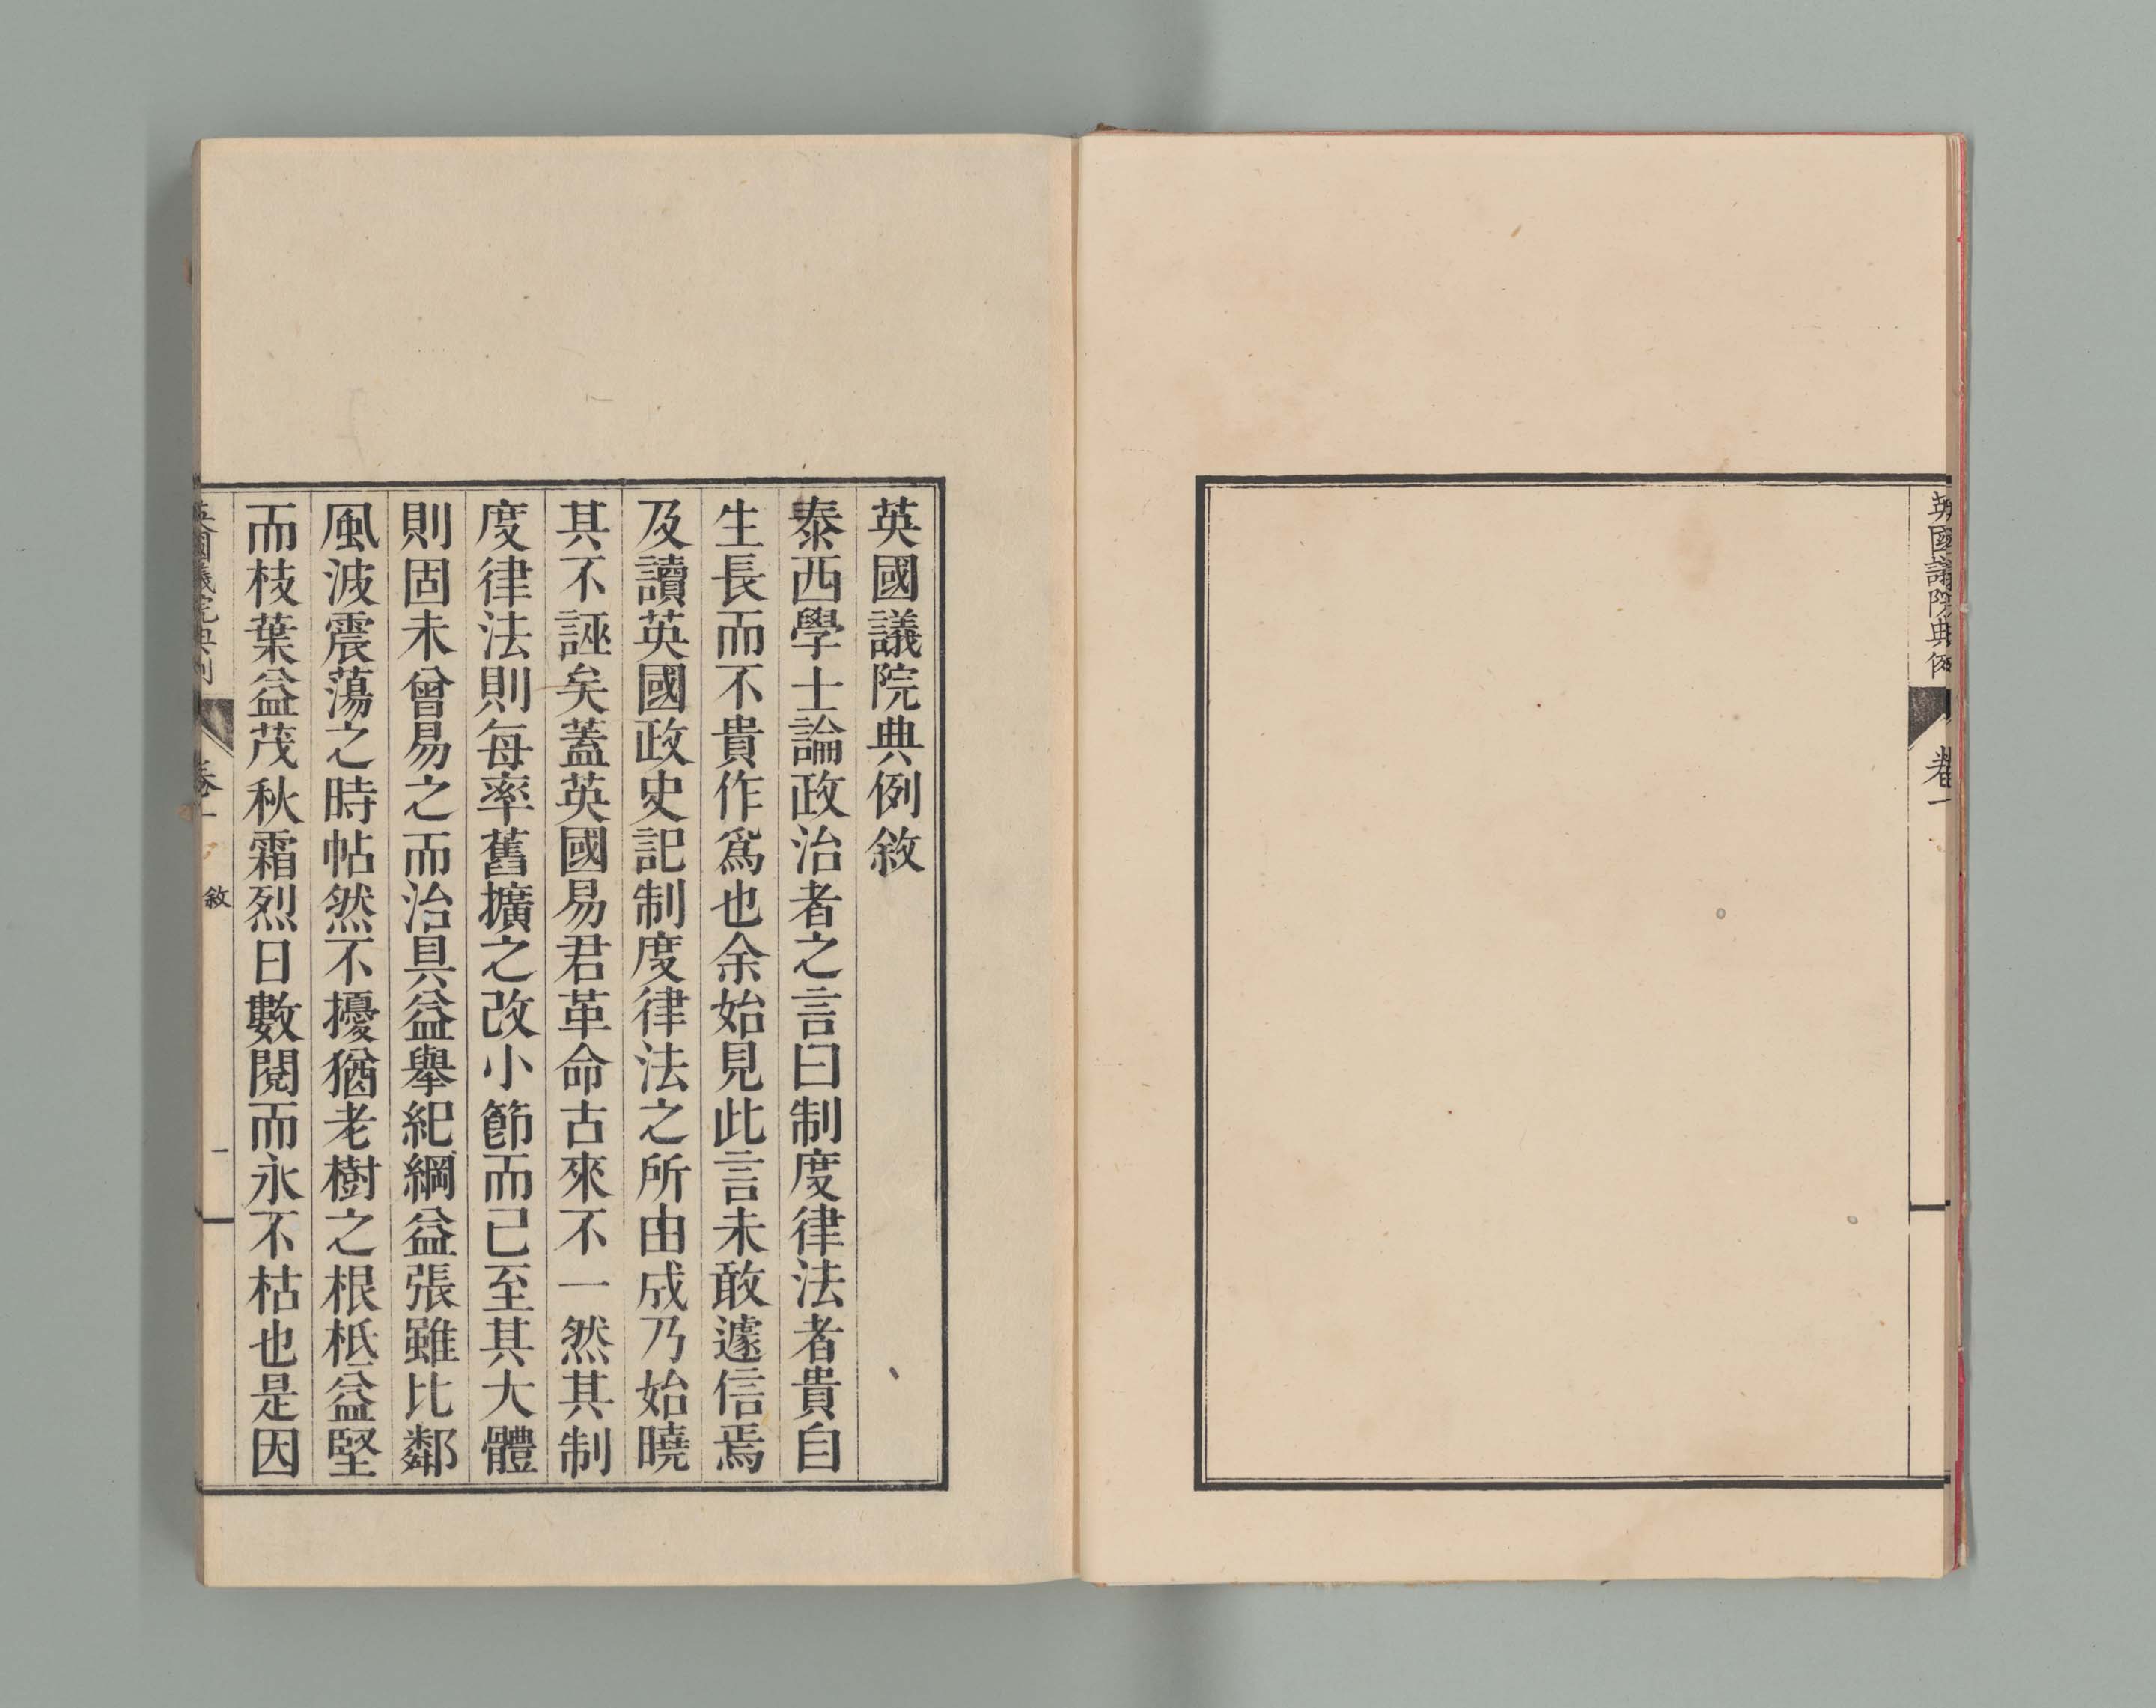 英國議院典例
卷一
英國議院典例敘
泰西學士論政治者之言曰制度律法者貴自
生長而不貴作爲也余始見此言未敢遽信焉
及讀英國政史記制度律法之所由成乃始曉
其不誣矣蓋英國易君革命古來不一然其制
度律法則每率舊擴之改小節而已至其大體
則固未曾易之而治具益舉紀綱益張雖比鄰
風波震蕩之時帖然不擾猶老樹之根柢益堅
而枝葉益茂秋霜烈日數閱而永不枯也是因
英國議院典例
卷一
敘
一